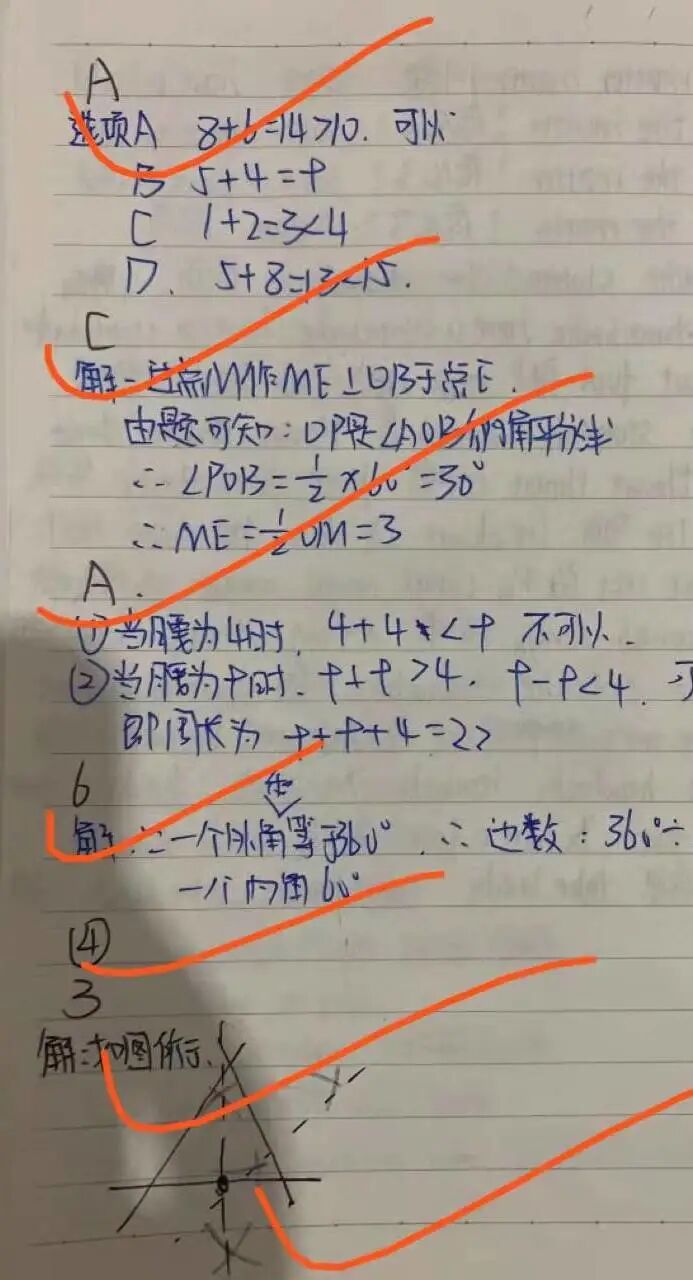 A
选项A 8+6=14>10. 可以
B 5+4=9
C 1+2=3<4
D. 5+8=13<15.
C
解:过点M作ME⊥OB于点E.
由题可知:OP是∠AOB的角平分线
∴∠POB=1/2×60°=30°
∴ME=1/2OM=3
A.
①当腰为4时, 4+4<9 不可以.
②当腰为9时. 9+9>4. 9-9<4.
即周长为 9+9+4=22
6
解:∵一个外角等于360° ∴边数:360°÷
一个内角60°
④
3
解:如图所示.